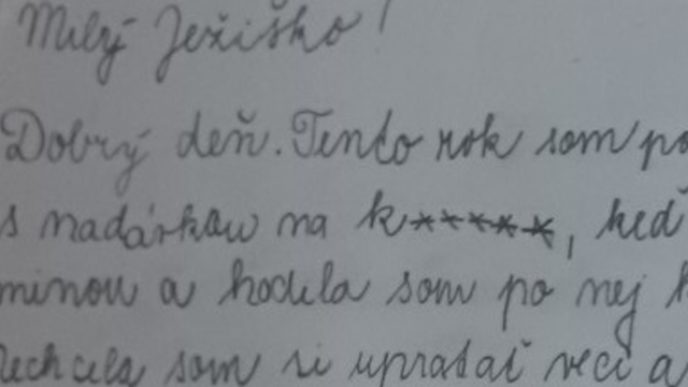 Milý Ježiško!
Dobrý deň. Tento rok som po
s nadárkou na k*****, keď
minou a hodila som po nej
nechcela som si upratať veci a